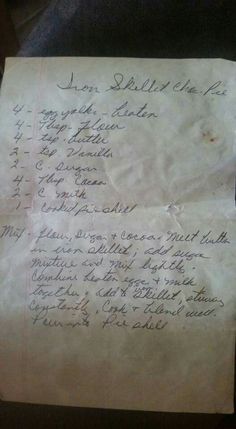 Iron Skillet Cho. Pie
4 - egg yolks - beaten
4 - Tbsp. Flour
4 - tsp. butter
2 - tsp Vanilla
2 C. Sugar
4 - Tbsp Cocoa
2 C milk
1 - Cooked pie shell
Mix - flour, sugar & cocoa. Melt butter
in iron skillet; add sugar
mixture and mix lightly.
Combine beaten eggs & milk
together & add to skillet, stirring
constantly. Cook & blend well.
Pour into Pie shell